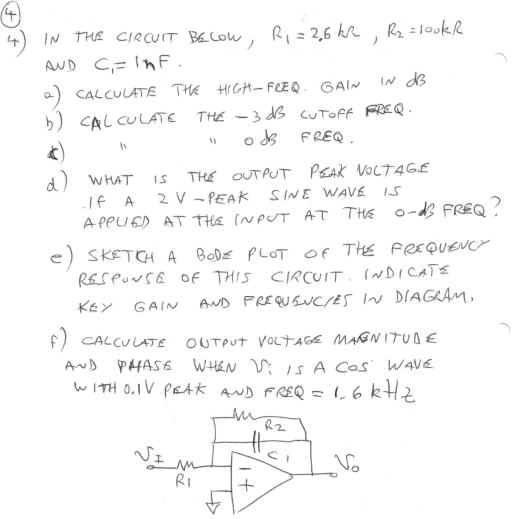 4
4) IN THE CIRCUIT BELOW, R1 = 2,6 kΩ, R2 = 100kΩ
AND C1 = 1nF.
a) CALCULATE THE HIGH-FREQ. GAIN IN dB
b) CALCULATE THE -3 dB CUTOFF FREQ.
c) " " 0 dB FREQ.
d) WHAT IS THE OUTPUT PEAK VOLTAGE
IF A 2 V-PEAK SINE WAVE IS
APPLIED AT THE INPUT AT THE 0-dB FREQ?
e) SKETCH A BODE PLOT OF THE FREQUENCY
RESPONSE OF THIS CIRCUIT. INDICATE
KEY GAIN AND FREQUENCIES IN DIAGRAM,
f) CALCULATE OUTPUT VOLTAGE MAGNITUDE
AND PHASE WHEN Vi IS A COS WAVE
WITH 0.1V PEAK AND FREQ = 1.6 kHz
R2
C1
VI
Vo
R1
-
+